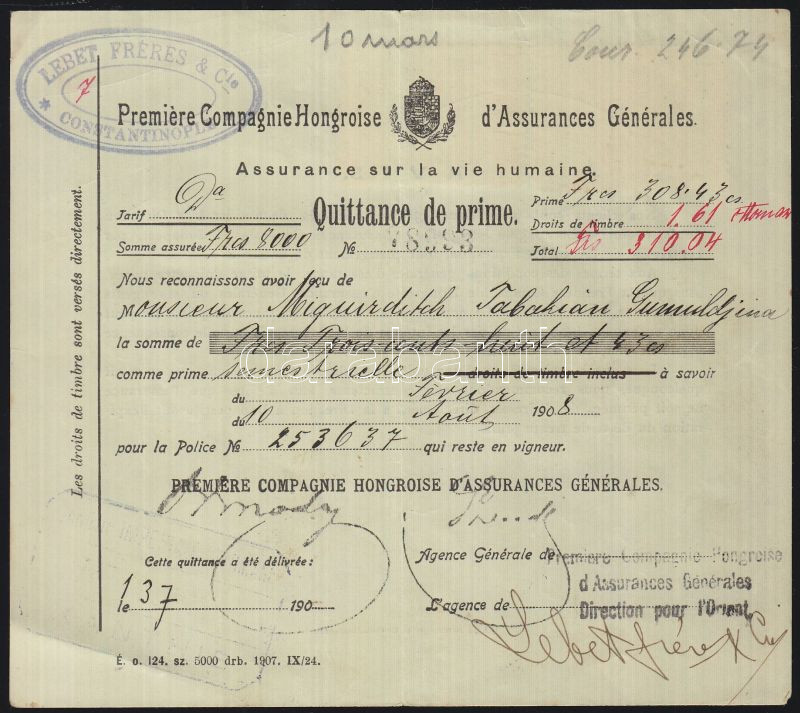 10 mars
Cour. 246.74
LEBET FRÈRES & Cie
7
* CONSTANTINOPLE
Première Compagnie Hongroise d'Assurances Générales.
Assurance sur la vie humaine.
Tarif Da
Quittance de prime.
Prime Frcs 308.43 cs
Droits de timbre 1.61
Somme assurée Frcs 8000
№
Total 310.04
Nous reconnaissons avoir reçu de
Monsieur Miguirditch Tabahian Gumuldjina
la somme de Frs Trois cents huit et 43 cs
comme prime semestrielle droits de timbre inclus à savoir
du Février
du 10 Août 1908
pour la Police № 253637 qui reste en vigueur.
PREMIÈRE COMPAGNIE HONGROISE D'ASSURANCES GÉNÉRALES.
Ormody
Cette quittance a été délivrée:
Agence Générale de
Première Compagnie Hongroise
d'Assurances Générales
Direction pour l'Orient
le 137 190
L'agence de
Lebet frères & Cie
É. o. 124. sz. 5000 drb. 1907. IX/24.
Les droits de timbre sont versés directement.
darabanth